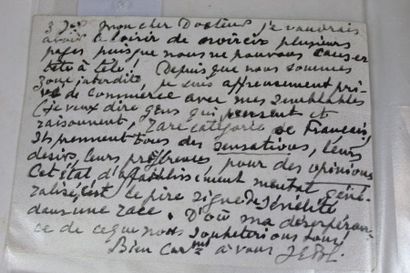 3 Jan mon cher Docteur, je voudrais
avoir le loisir de noircir plusieurs
pages puisque nous ne pouvons causer
tête à tête! Depuis que nous sommes
zone interdite, je suis affreusement pri-
vé de commerce avec mes semblables
(je veux dire gens qui pensent et
raisonnent, rare catégorie de Français,
Ils prennent tous des sensations, leurs
désirs, leurs préférences pour des opinions
Cet état d'affaiblissement mental géné-
ralisé, c'est le pire signe de sénilité
dans une race. D'où ma désespéran-
ce de ce que nous souhaiterions tous
Bien cor.mt à vous